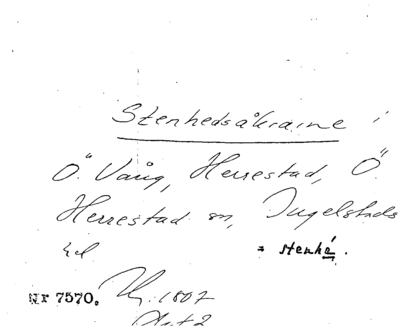 Stenhedsåkrarne i
Ö. Vång, Herrestad, Ö.
Herrestad sn, Ingelstads
hd = stenhé.
Nr 7570. 1807
Akt 2